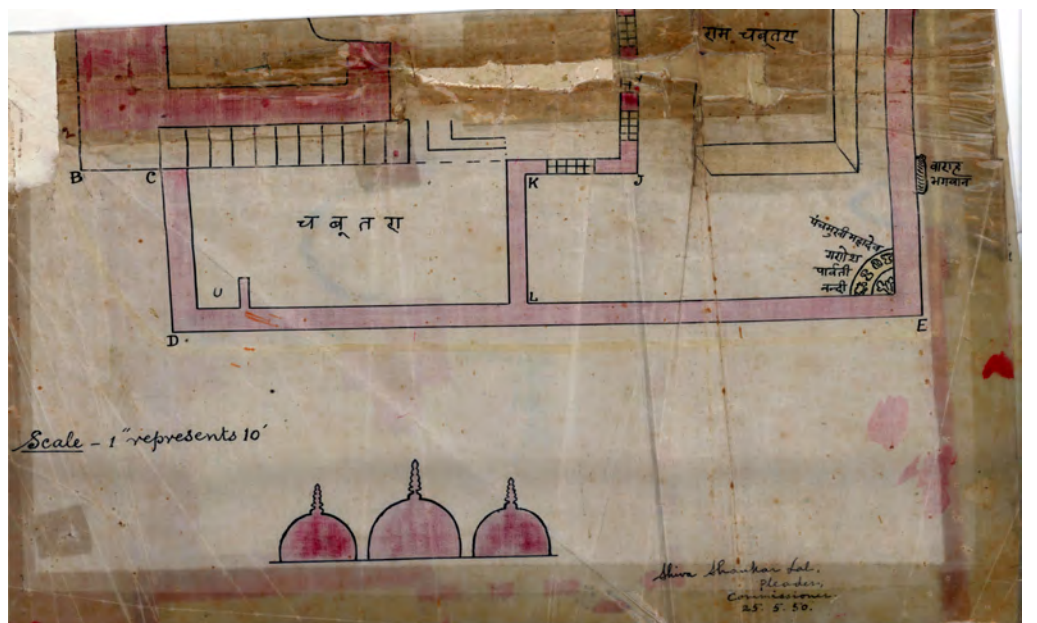 राम चबूतरा
2
B
C
K
J
वाराह
भगवान
चबूतरा
पंचमुखी महादेव
गणेश
पार्वती
नन्दी
U
L
D
E
Scale - 1" represents 10'
Shiva Shankar Lal,
Pleader,
Commissioner
25. 5. 50.